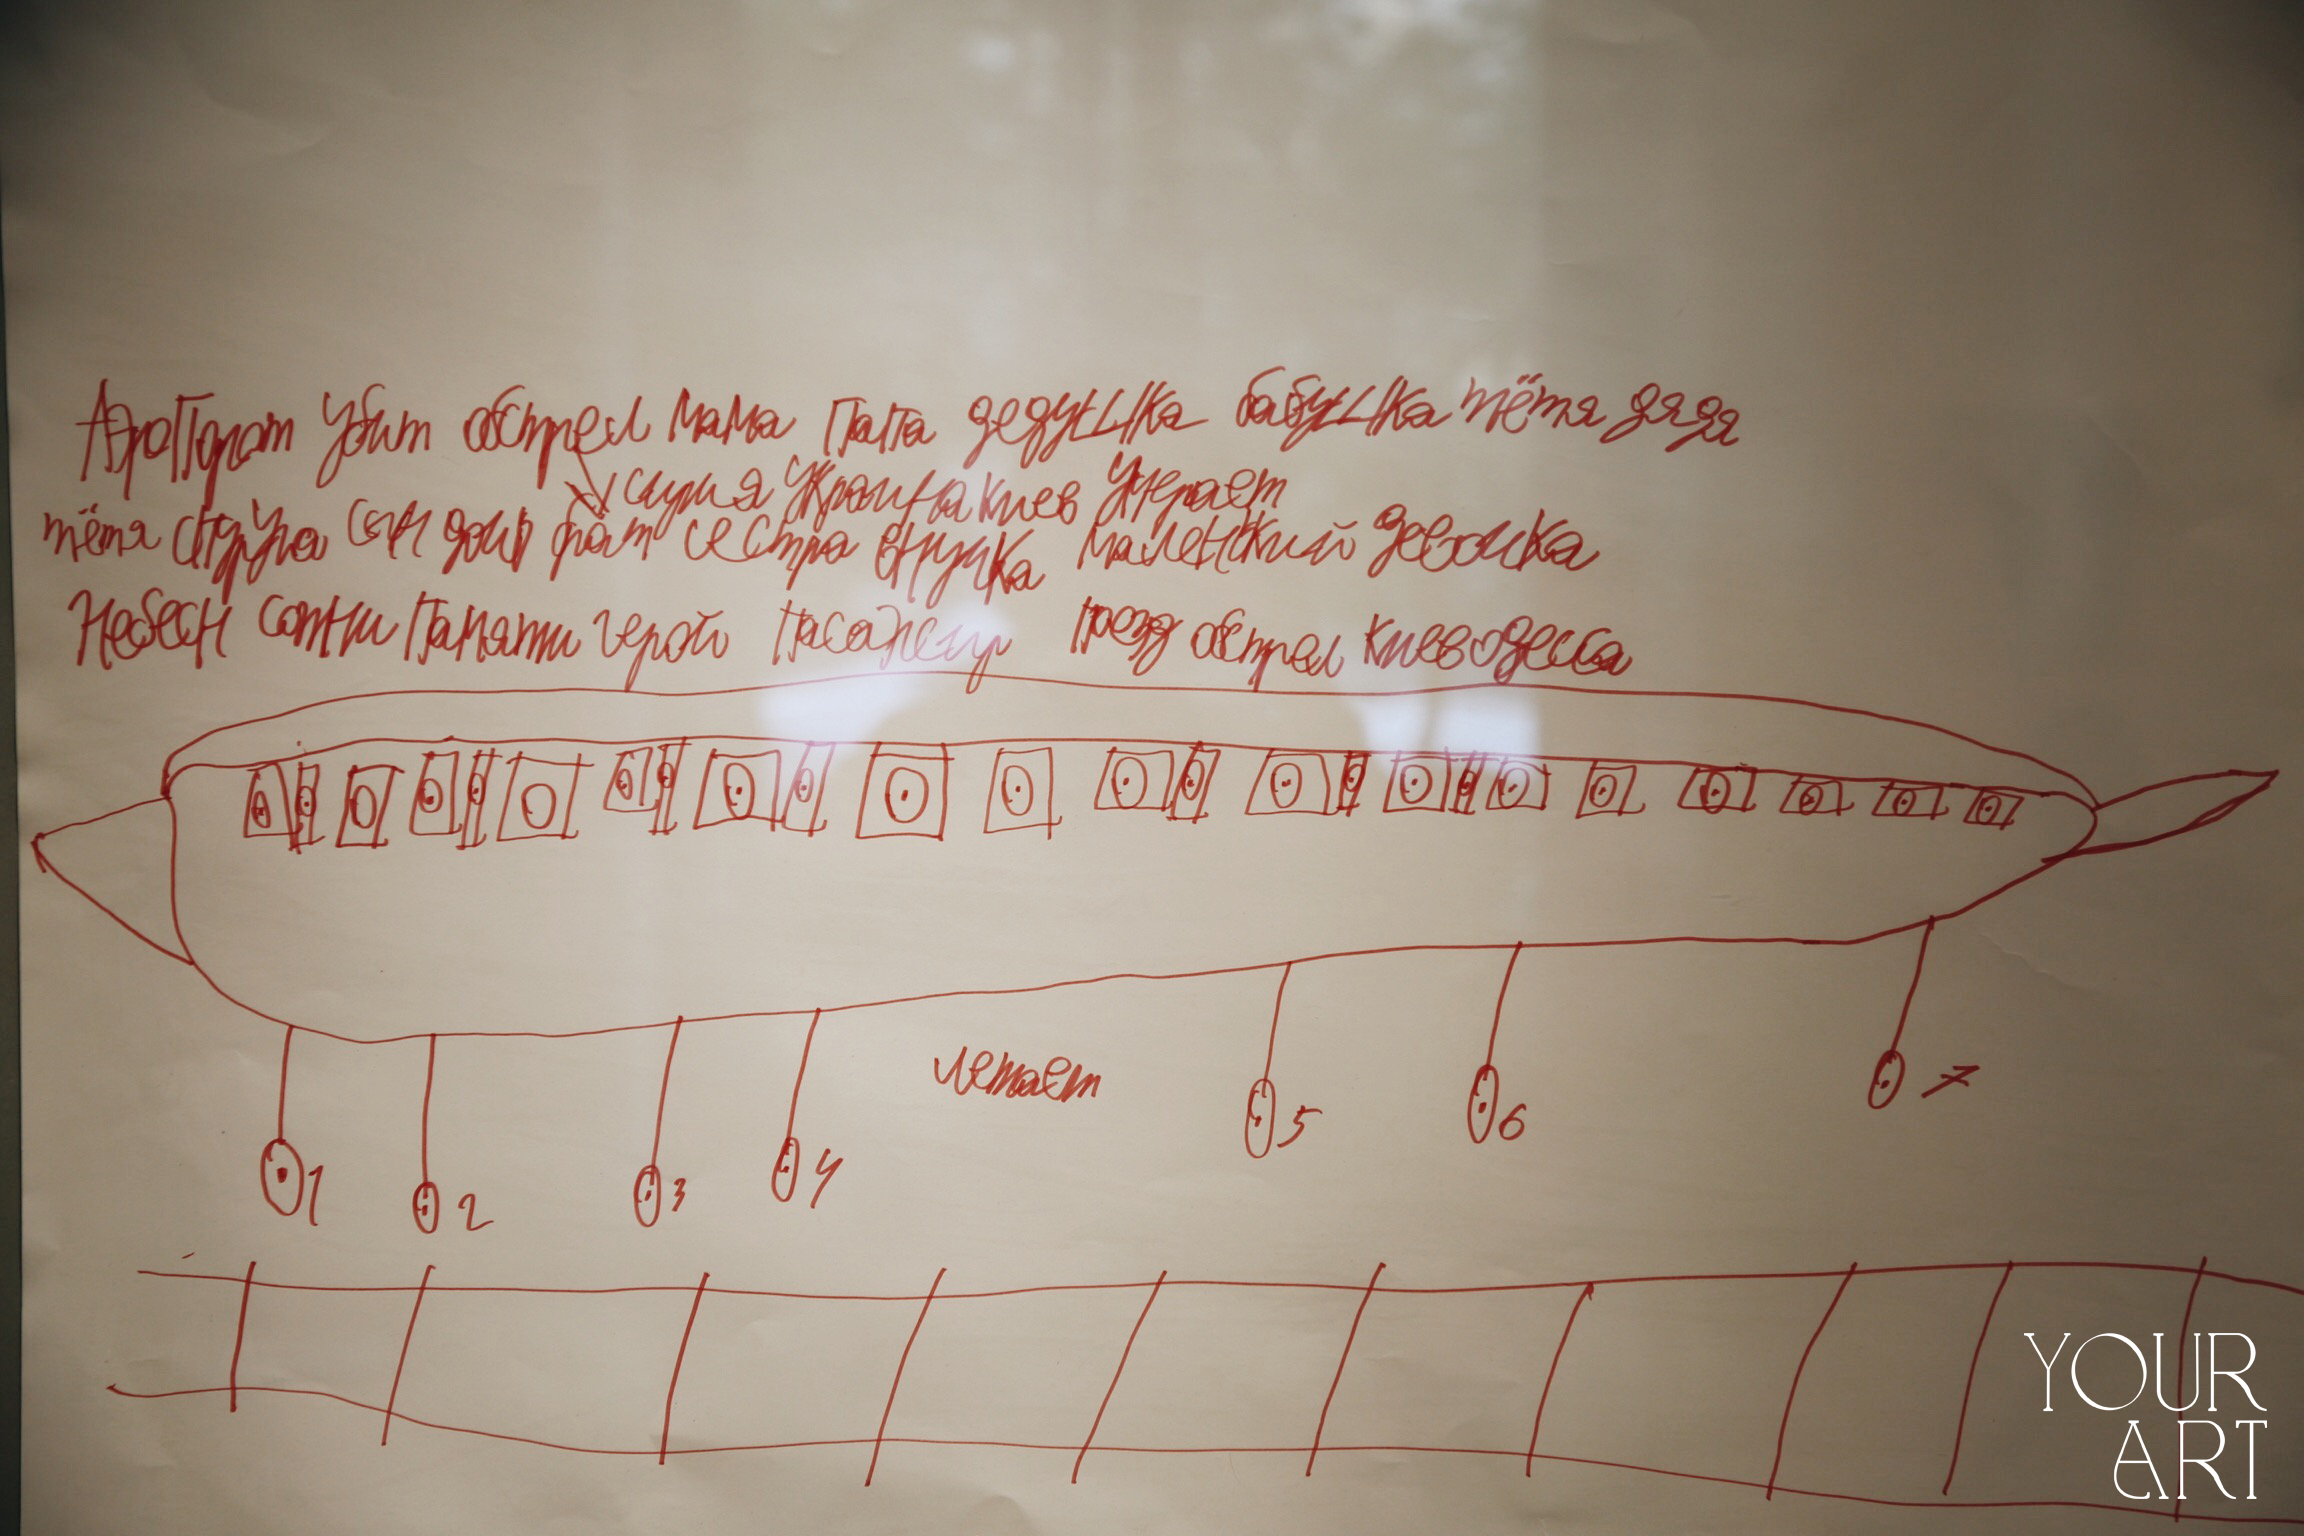 АэроПорот убит обстрел мама папа дедушка бабушка тётя дядя
Украина Киев умерает
тётя сын брат сестра внучка маленкий девочка
Небесн сотни Памяти герой пасажеир поезд обстрел Киев одесса
летает
1 2 3 4 5 6 7
YOUR
ART